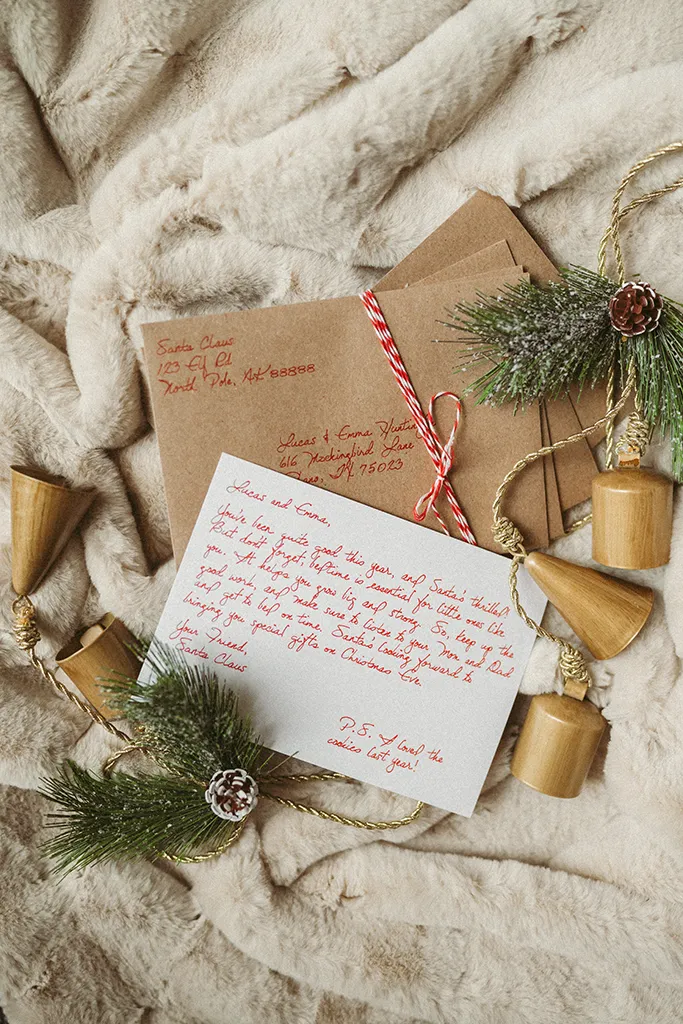 Santa Claus
123 Elf Rd
North Pole, AK 88888
Lucas & Emma Huntin
616 Mockingbird Lane
Plano, TX 75023
Lucas and Emma,
You've been quite good this year, and Santa's thrilled!
But don't forget, bedtime is essential for little ones like
you. It helps you grow big and strong. So, keep up the
good work, and make sure to listen to your Mom and Dad
and get to bed on time. Santa's looking forward to
bringing you special gifts on Christmas Eve.
Your Friend,
Santa Claus
P.S. I loved the
cookies last year!